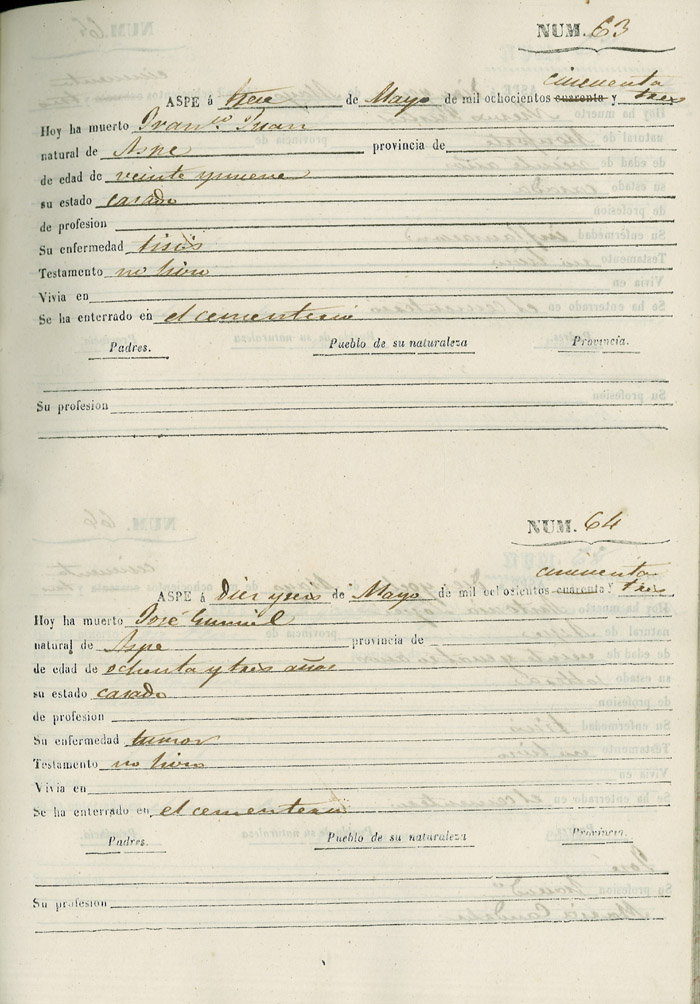 NUM. 63
cincuenta
ASPE á trece de Mayo de mil ochocientos cuarenta y tres
Hoy ha muerto Fran.co Juan
natural de Aspe provincia de
de edad de veinte y nueve
su estado casado
de profesion
Su enfermedad tisis
Testamento no hizo
Vivia en
Se ha enterrado en el cementerio
Padres. Pueblo de su naturaleza Provincia.
Su profesion
NUM. 64
cincuenta
ASPE á Diez y seis de Mayo de mil ochosientos cuarenta y tres
Hoy ha muerto José
natural de Aspe provincia de
de edad de ochenta y tres años
su estado casado
de profesion
Su enfermedad tumor
Testamento no hizo
Vivia en
Se ha enterrado en el cementerio
Padres. Pueblo de su naturaleza Provincia.
Su profesion